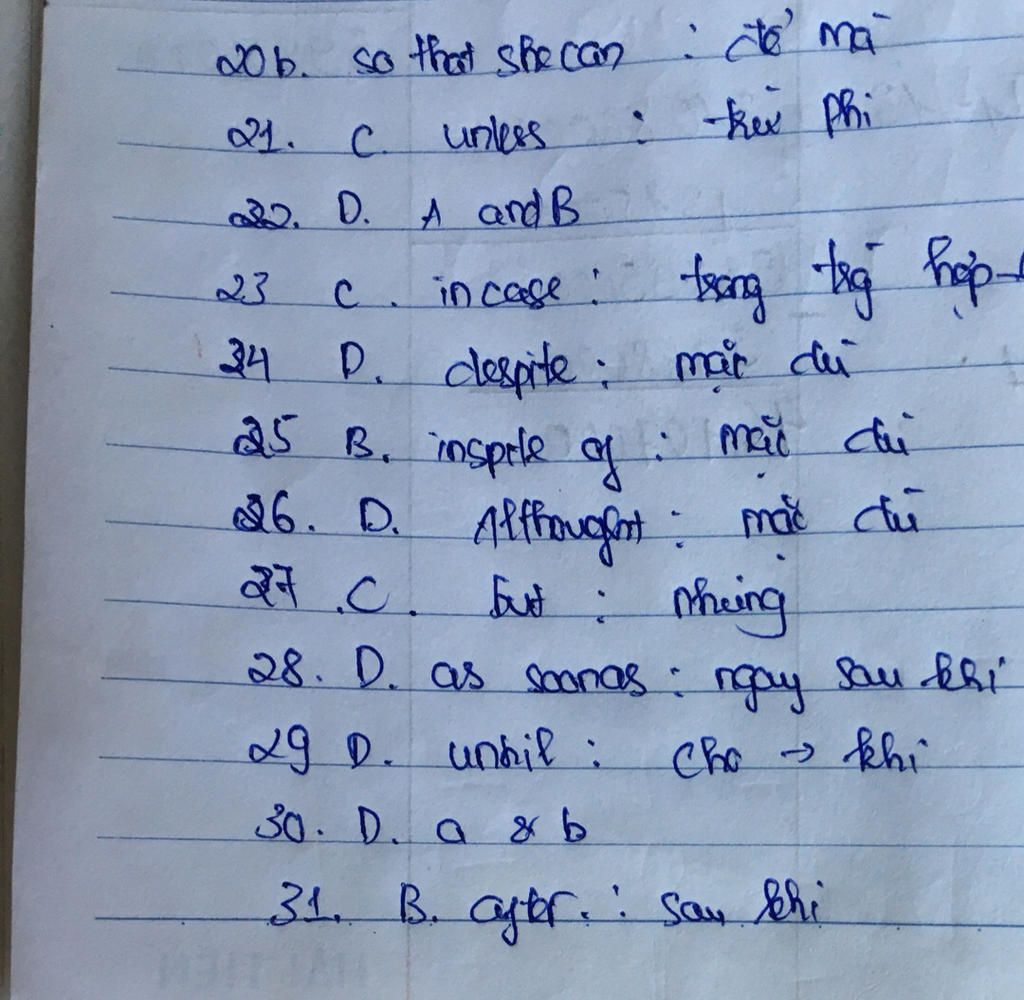 20b. so that she can : để mà
21. C. unless : trừ phi
22. D. A and B
23 C. in case : trong trg hợp
24 D. despite : mặc dù
25 B. inspite of : mặc dù
26. D. Althought : mặc dù
27 .C. but : nhưng
28. D. as soon as : ngay sau khi
29 D. until : cho → khi
30. D. a & b
31. B. after. : sau khi